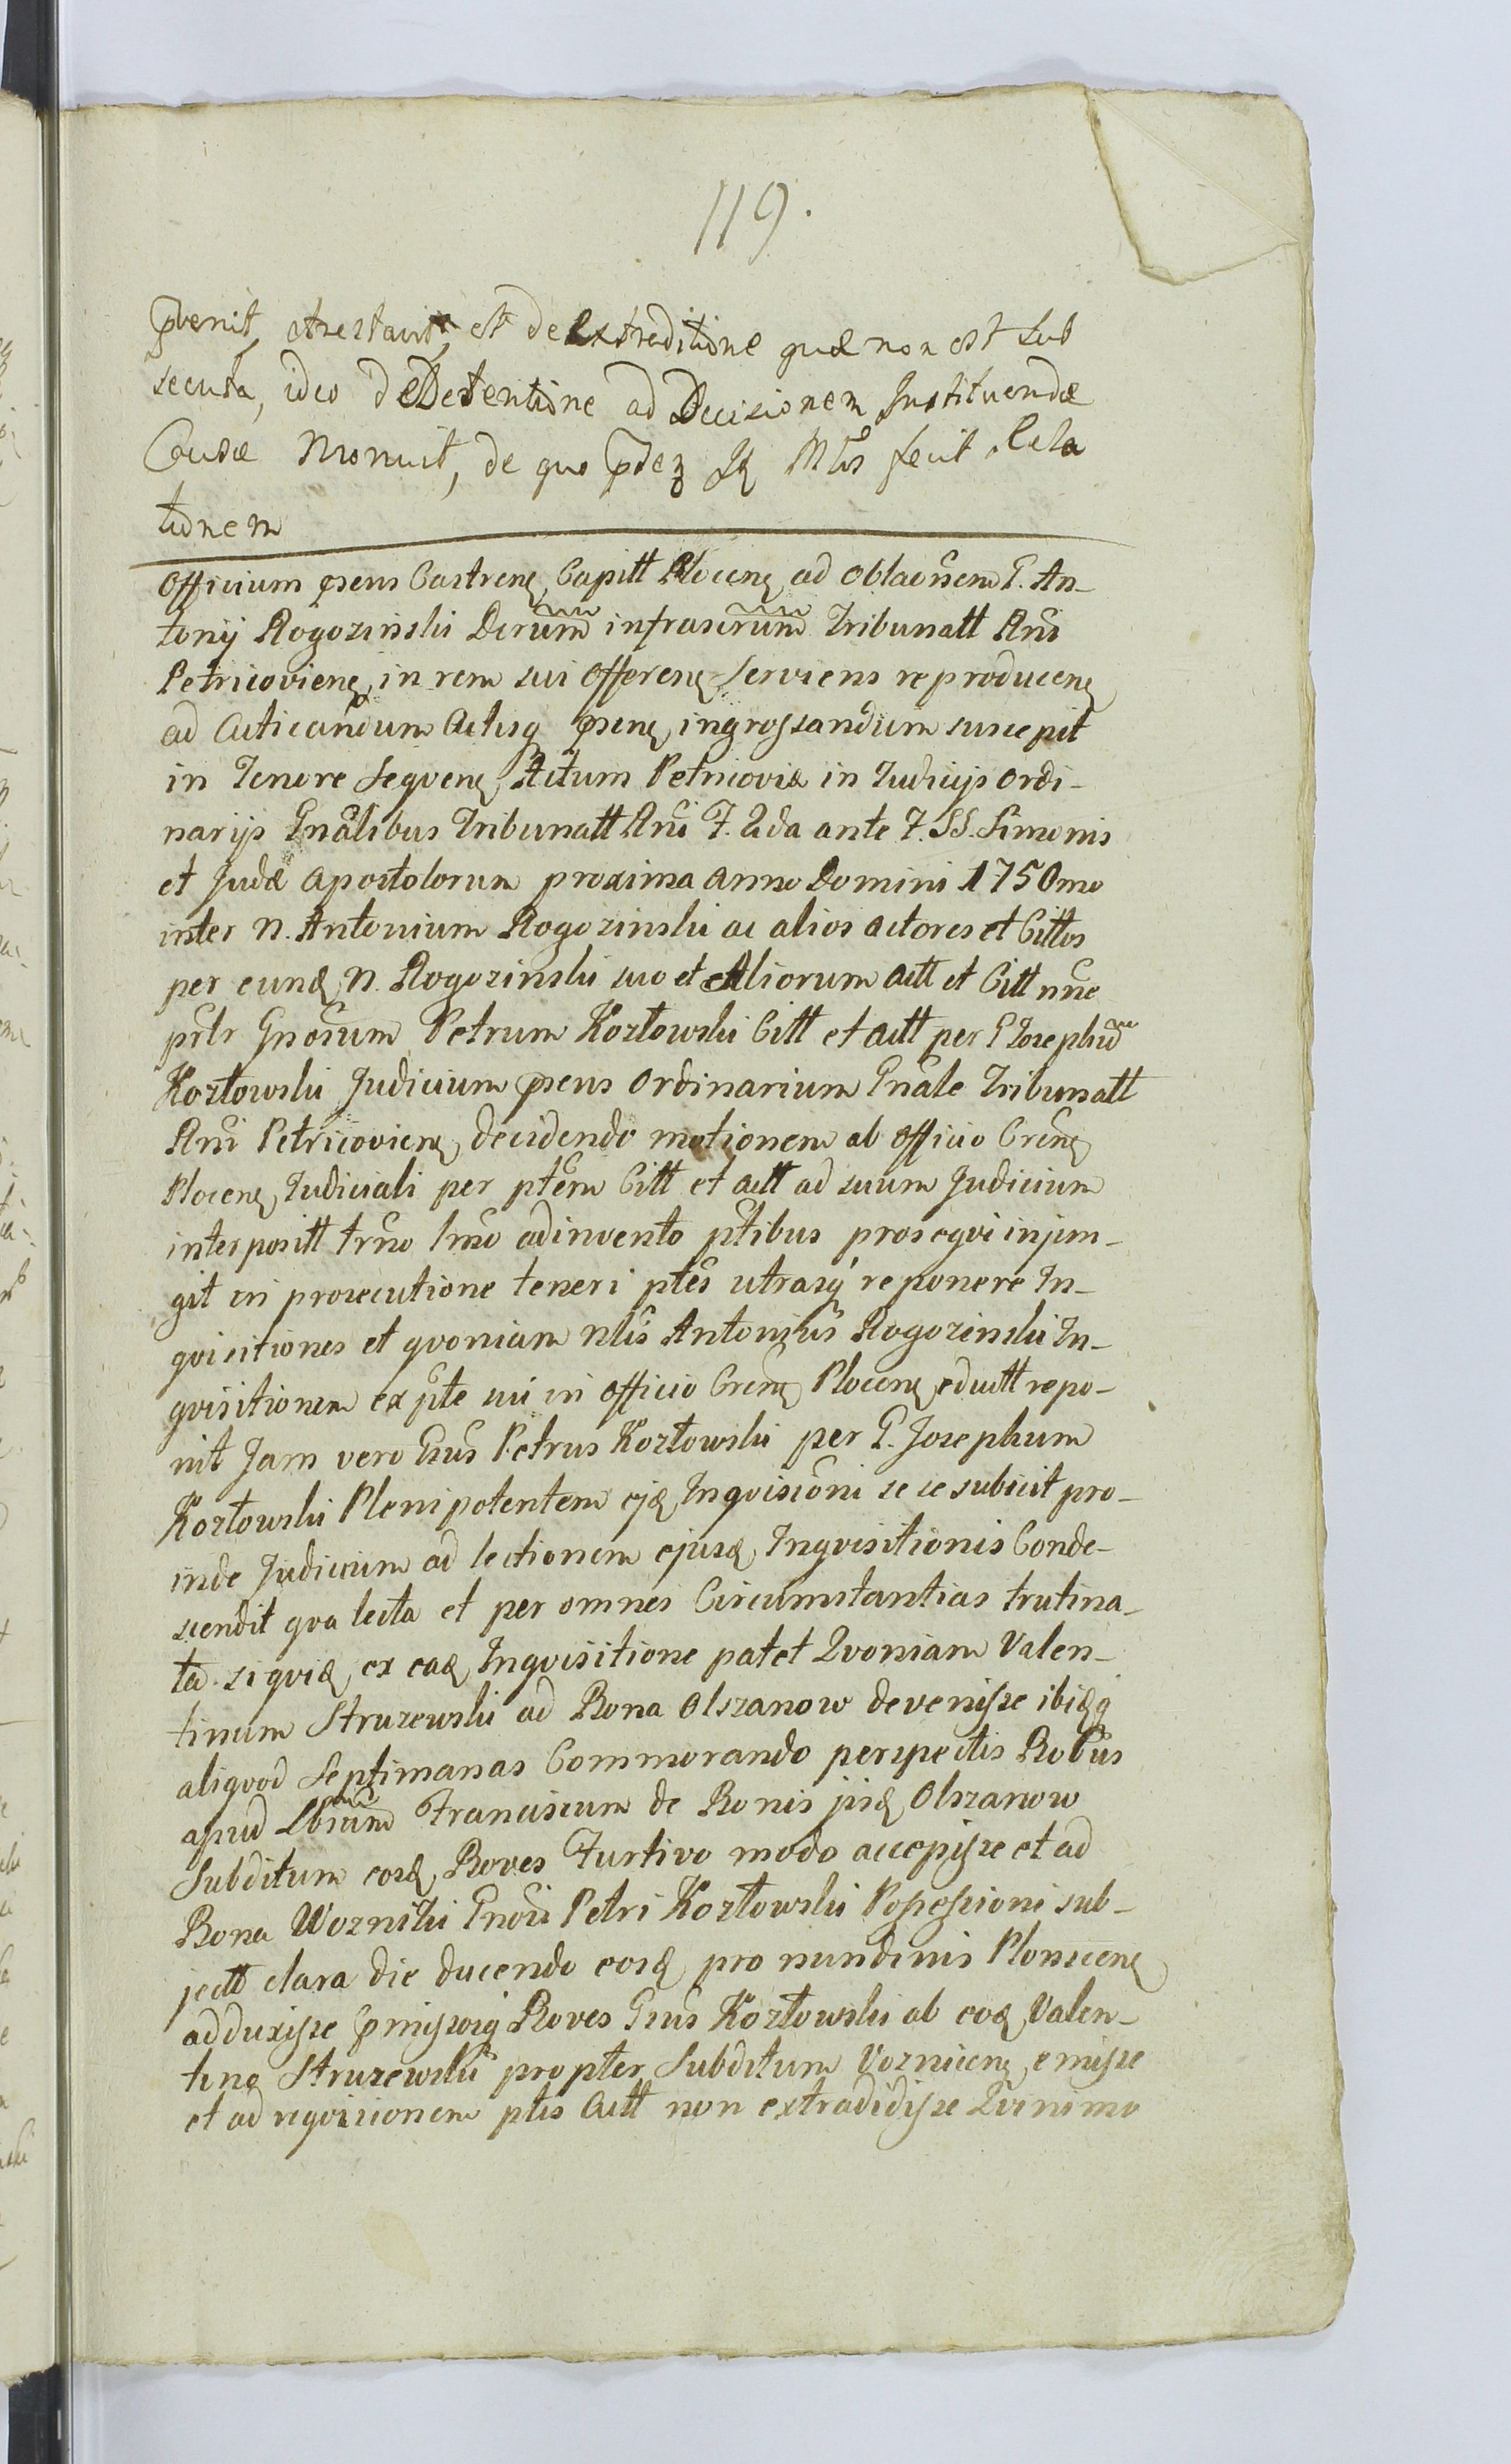 119.
pvenit, Arestavit, et de Extraditione quæ non est sub
secuta, ideo de Detentione ad Decisionem Instituendæ
Causæ Monuit, de quo pdez Ję Mtrs fecit Rela
tionem
Officium psens Castrenę Capitt Plocenę ad oblaõnem G. An-
tonij Rogozinski Decrum infrascrum Tribunatt Rni
Petricovienę in rem sui offerenę serviens reproducenę
ad Acticandum Actisq psenę ingrossandum suscepit
in Tenore Seqvenę Actum Petricoviæ in Judicijs ordi-
narijs Gnalibus Tribunatt Rni F. 2da ante F. SS. Simonis
et Judæ Apostolorum proxima Anno Domini 1750mo
inter N. Antonium Rogozinski ac alios actores et Cittos
per eundę N. Rogozinski suo et Aliorum Actt et Citt nne
prtr Gnosum Petrum Kozłowski Citt et Actt per G Josephum
Kozłowski Judicium psens Ordinarium Gnale Tribunatt
Rni Petricovienę decidendo motionem ab officio Crenę
Plocenę Judiciali per ptem Citt et Actt ad suum Judicium
interpositt trno hno adinvento ptibus proseqvi injun-
git in prosecutione teneri ptes utrasq reponere In-
qvisitiones et qvoniam Nlis Antonius Rogozinski In-
qvisitionem ex pte sui in officio Crenę Plocenę eductt repo-
nit Jam vero Gsus Petrus Kozłowski per G. Josephum
Kozłowski Plenipotentem ejdę Inqvisiõni se se subiicit pro-
inde Judicium ad lectionem ejusdę Inqvisitionis Conde-
scendit qva lecta et per omnes Circumstantias trutina-
ta. siqvidę ex eadę Inqvisitione patet Qvoniam Valen-
tinum Struzewski ad Bona Olszanow devenisse ibidęq
aliqvod Septimanas Commorando perspectis Bobus
apud Lbrum Franciscum de Bonis ijsdę Olszanow
Subditum eosdę Boves Furtivo modo accepisse et ad
Bona Wozniki Gnosi Petri Kozłowski Possessioni sub-
jectt clara die ducendo eosdę pro nundinis Plonscenę
adduxisse pmissosq Boves Gsus Kozłowski ab eodę Valen-
tino Struzewski propter Subditum Voznicenę emisse
et ad reqvisicionem ptis Actt non extradidisse Qvinimo